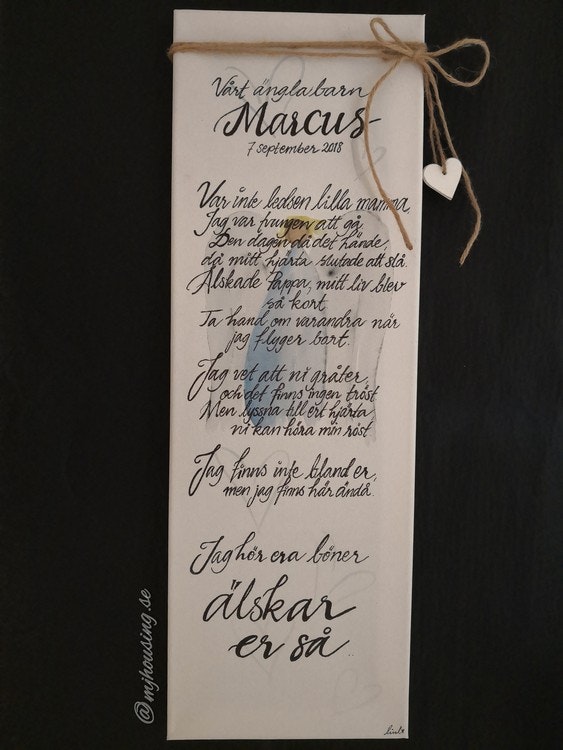 Vårt änglabarn
Marcus
7 september 2018
Var inte ledsen lilla mamma,
Jag var tvungen att gå.
Den dagen då det hände,
då mitt hjärta slutade att slå.
Älskade Pappa, mitt liv blev
så kort
Ta hand om varandra när
jag flyger bort.
Jag vet att ni gråter,
och det finns ingen tröst
Men lyssna till ert hjärta,
ni kan höra min röst
Jag finns inte bland er,
men jag finns här ändå.
Jag hör era böner
älskar
er så
@mjhousing.se